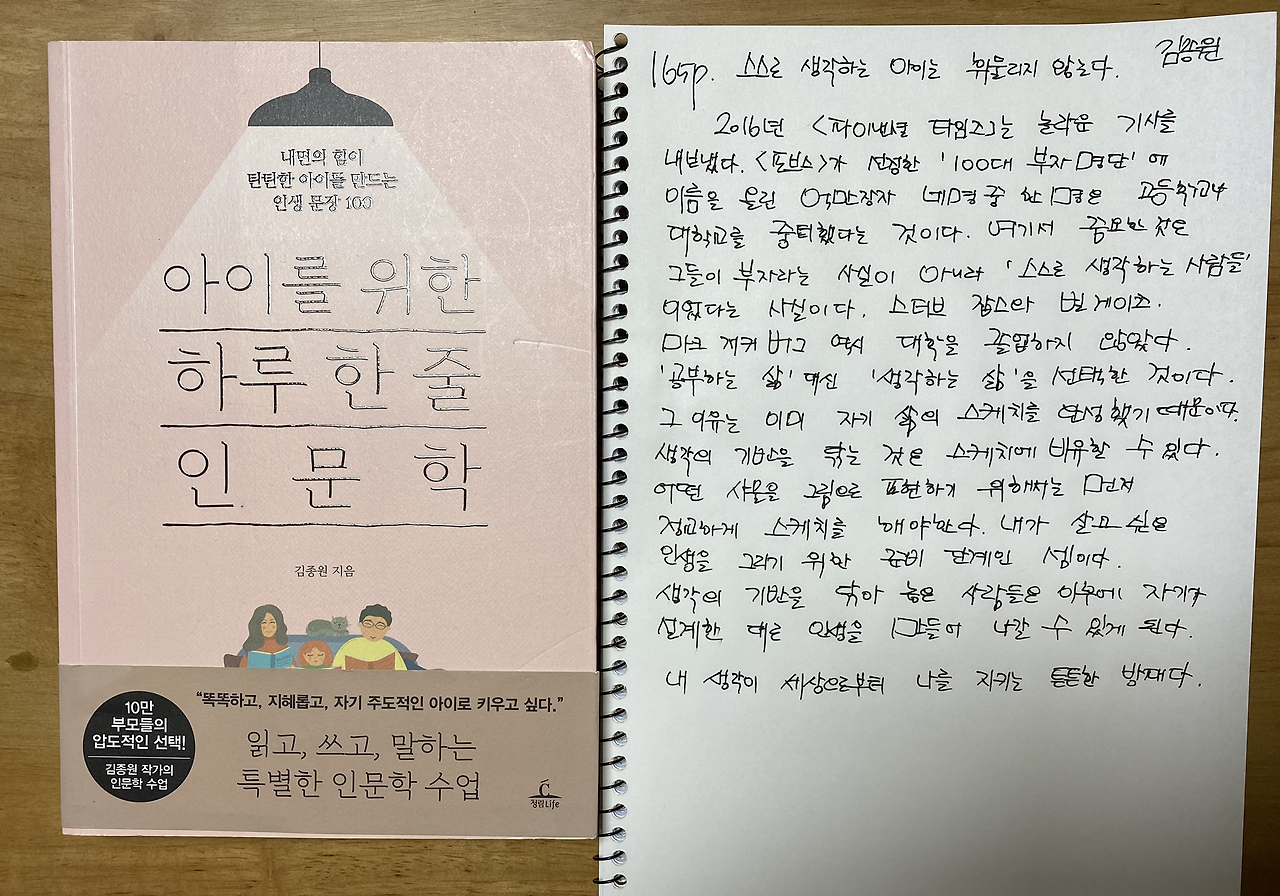 내면의 힘이
탄탄한 아이를 만드는
인생 문장 100
아이를 위한
하루 한 줄
인문학
김종원 지음
10만
부모들의
압도적인 선택!
김종원 작가의
인문학 수업
“똑똑하고, 지혜롭고, 자기 주도적인 아이로 키우고 싶다.”
읽고, 쓰고, 말하는
특별한 인문학 수업
청림Life
165p. 스스로 생각하는 아이는 휘둘리지 않는다. 김종원
2016년 <파이낸셜 타임즈>는 놀라운 기사를
내보냈다. <포브스>가 선정한 '100대 부자 명단'에
이름을 올린 억만장자 네명 중 한 명은 고등학교나
대학교를 중퇴했다는 것이다. 여기서 중요한 것은
그들이 부자라는 사실이 아니라 '스스로 생각하는 사람들'
이었다는 사실이다. 스티브 잡스와 빌 게이츠.
마크 저커버그 역시 대학을 졸업하지 않았다.
'공부하는 삶' 대신 '생각하는 삶'을 선택한 것이다.
그 이유는 이미 자기 삶의 스케치를 완성했기 때문이다.
생각의 기반을 닦는 것은 스케치에 비유할 수 있다.
어떤 사물을 그림으로 표현하기 위해서는 먼저
정교하게 스케치를 해야한다. 내가 살고 싶은
인생을 그리기 위한 준비 단계인 셈이다.
생각의 기반을 닦아 놓은 사람들은 이후에 자기가
설계한 대로 인생을 만들어 나갈 수 있게 된다.
내 생각이 세상으로부터 나를 지키는 튼튼한 방패다.